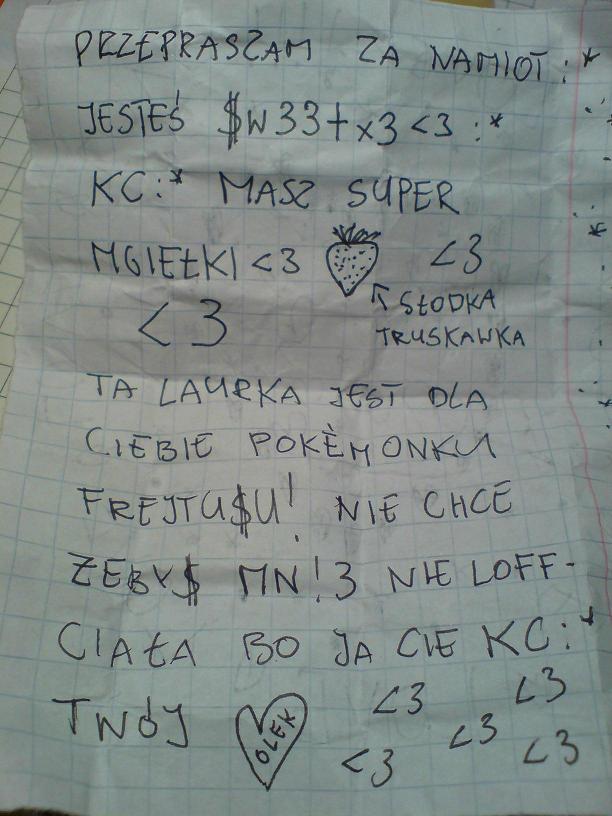 PRZEPRASZAM ZA NAMIOT :*
JESTEŚ $W33+x3 <3 :*
KC:* MASZ SUPER
MGIEŁKI <3 <3
SŁODKA
TRUSKAWKA
<3
TA LAURKA JEST DLA
CIEBIE POKÈMONKU
FREJTU$U! NIE CHCE
ŻEBY$ MN!3 NIE LOFF-
CIAŁA BO JA CIE KC:*
TWÓJ OLEK <3 <3
<3 <3 <3